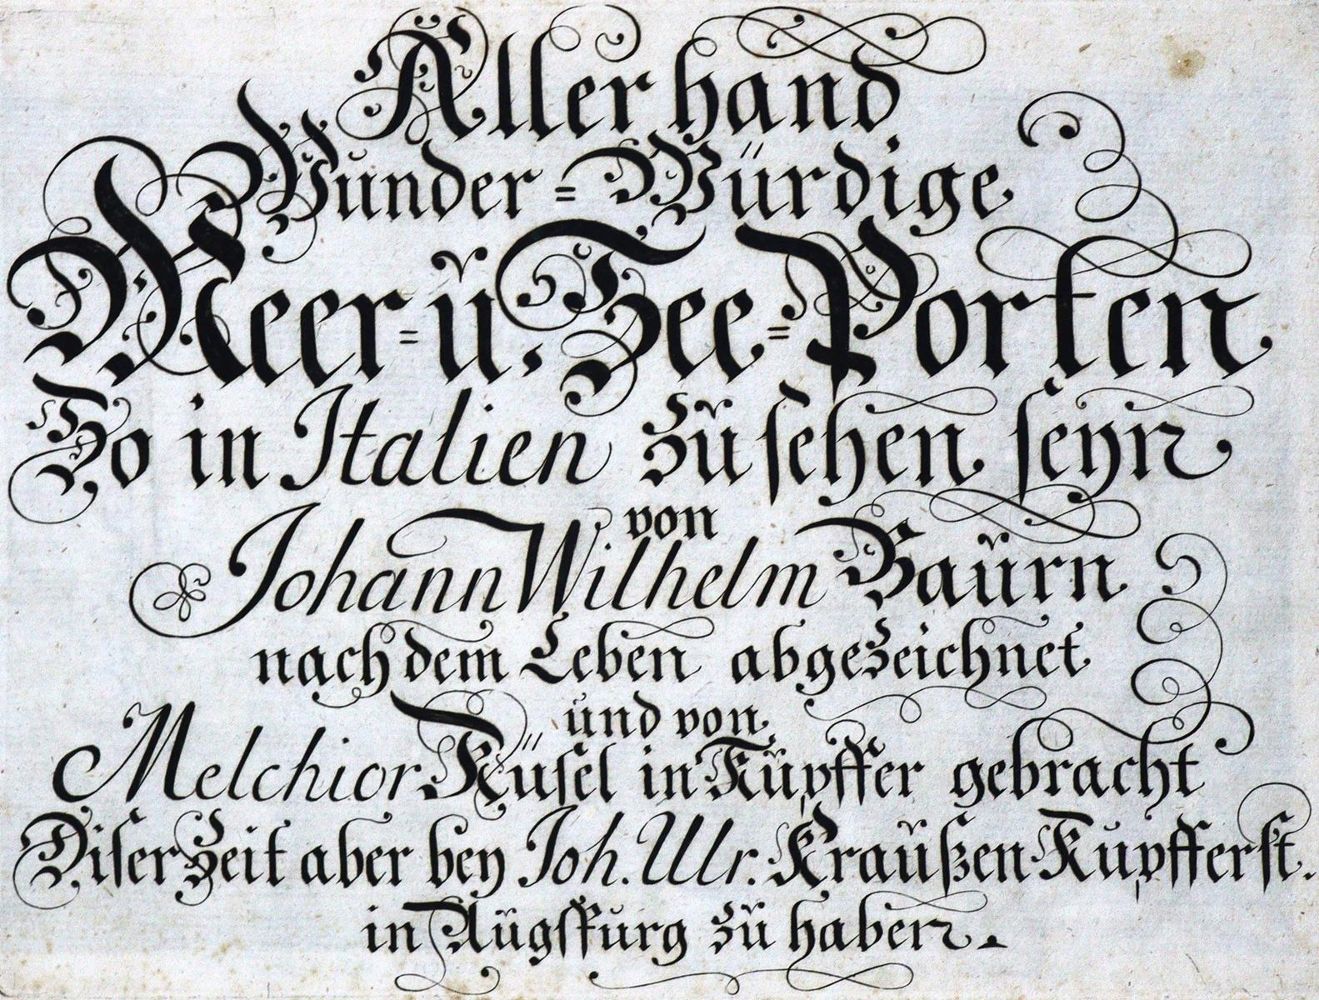 Allerhand
Wunder=Würdige
Meer=u. See=Porten
So in Italien zu sehen seyn
von
Johann Wilhelm Baurn
nach dem Leben abgezeichnet
und von
Melchior Küsel in Kupffer gebracht
Diser Zeit aber bey Joh. Ulr. Kraußen Kupfferst.
in Augspurg zu haben.